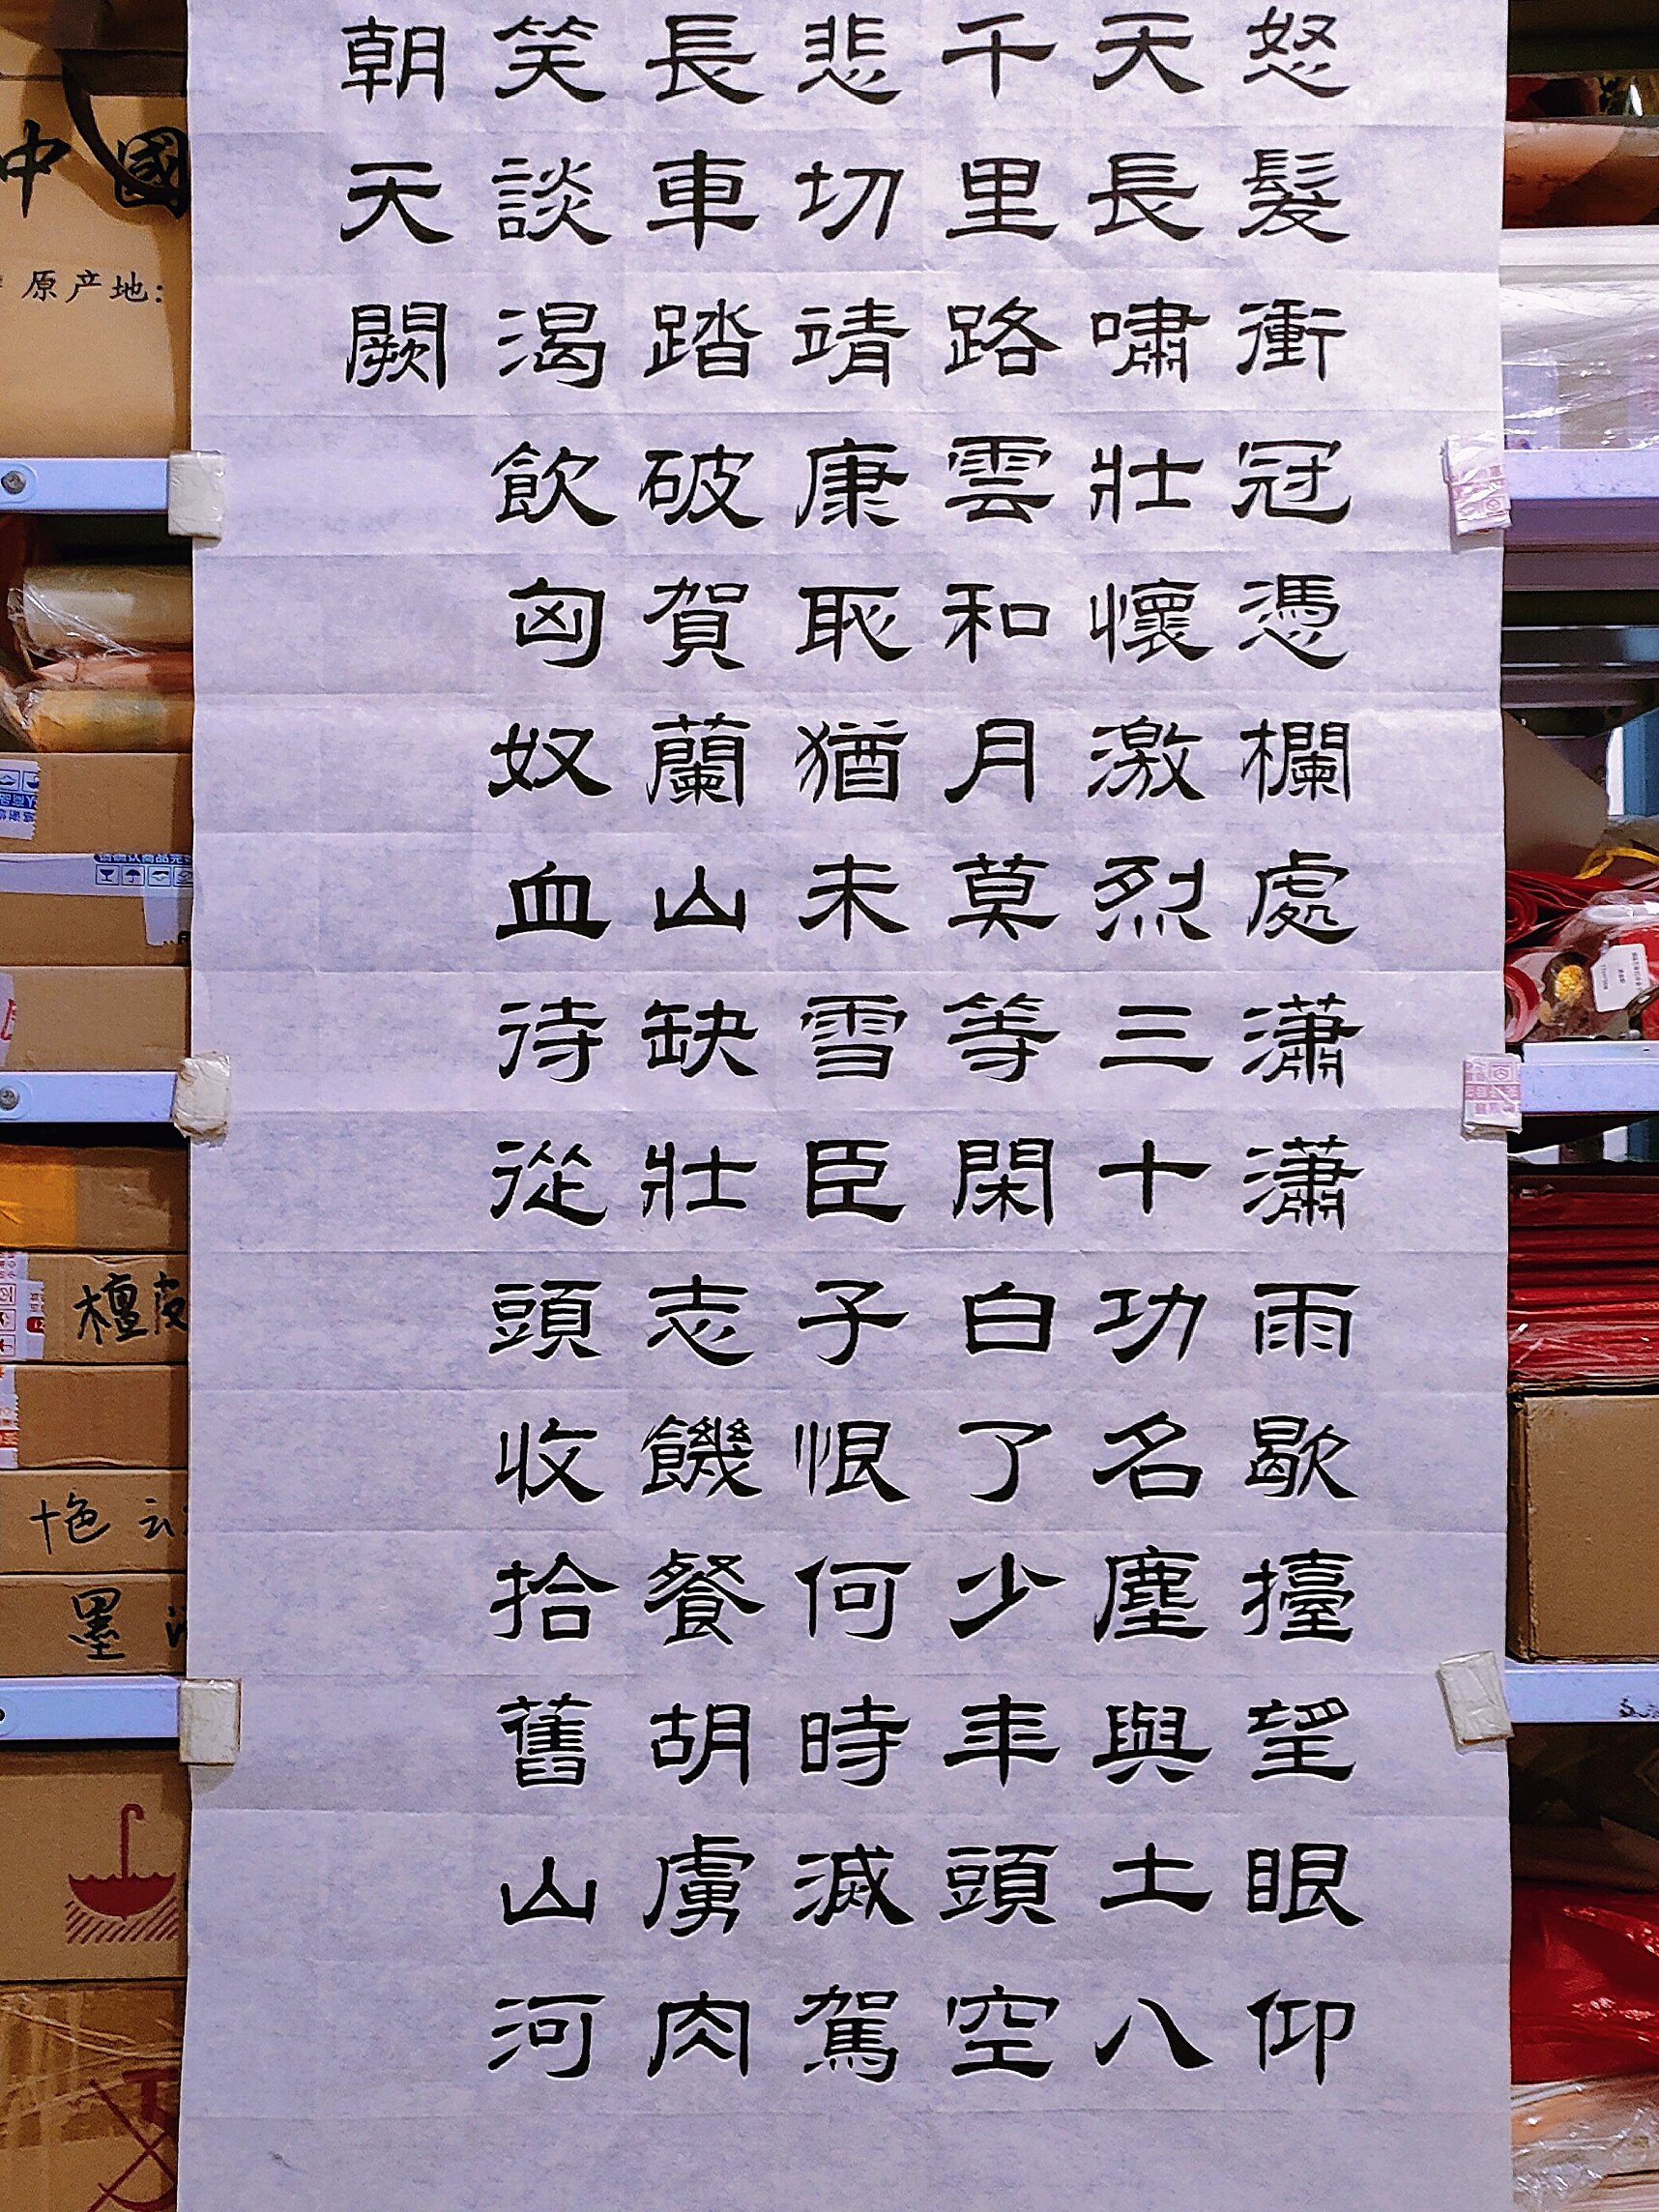 怒髮衝冠憑欄處瀟瀟雨歇擡望眼仰
天長嘯壯懷激烈三十功名塵與土八
千里路雲和月莫等閑白了少年頭空
悲切靖康恥猶未雪臣子恨何時滅駕
長車踏破賀蘭山缺壯志饑餐胡虜肉
笑談渴飲匈奴血待從頭收拾舊山河
朝天闕
中國
原产地:
檀皮
十色
墨